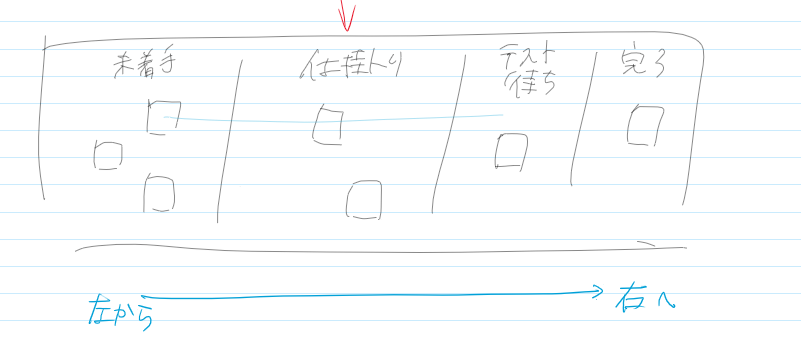 未着手
仕掛中
テスト
待ち
完了
左から
右へ